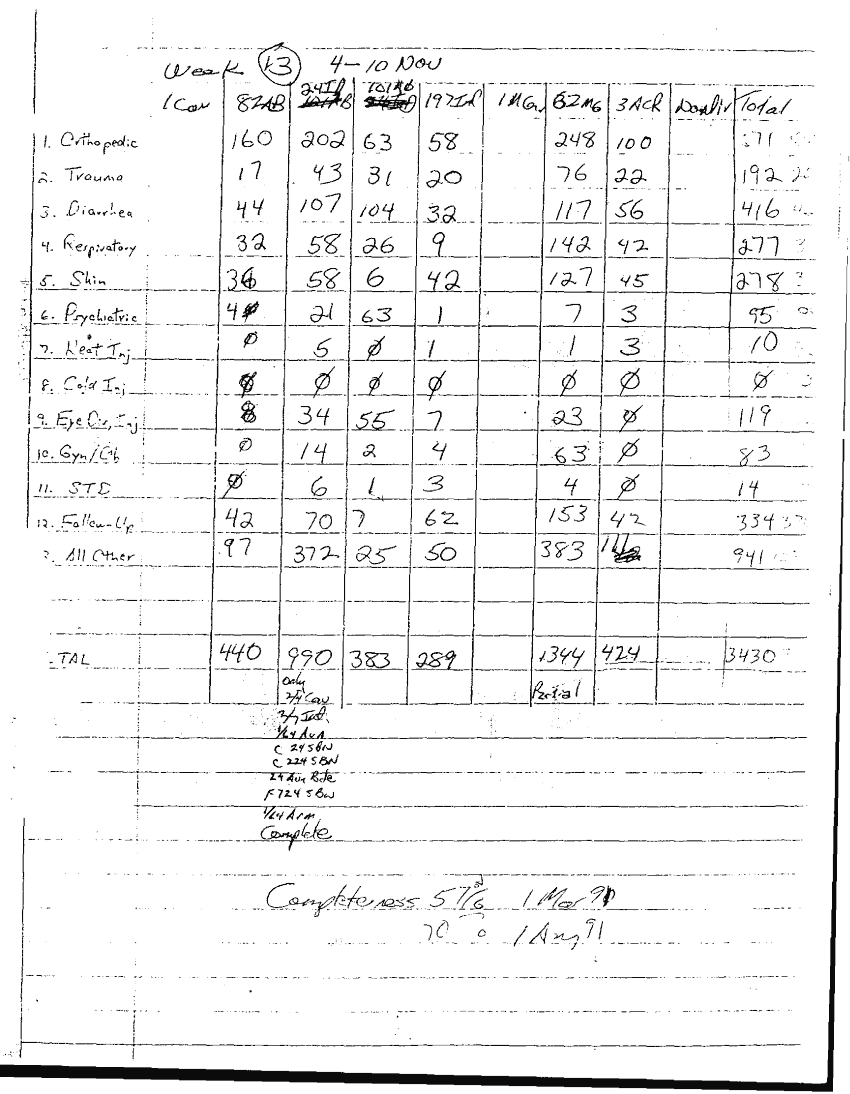 Week 13 4-10 Nov
1 Cav 82AB 24ID 101AB 197IB 1MG 62MG 3ACR Nondiv Total
1. Orthopedic 160 202 63 58 248 100 571
2. Trauma 17 43 31 20 76 22 192
3. Diarrhea 44 107 104 32 117 56 416
4. Respiratory 32 58 26 9 142 42 277
5. Skin 36 58 6 42 127 45 278
6. Psychiatric 4 21 63 1 7 3 95
7. Heat Inj Ø 5 Ø 1 1 3 10
8. Cold Inj Ø Ø Ø Ø Ø Ø Ø
9. Eye Dis, Inj 8 34 55 7 23 Ø 119
10. Gyn/Ob Ø 14 2 4 63 Ø 83
11. STD Ø 6 1 3 4 Ø 14
12. Follow-Up 42 70 7 62 153 42 334
All Other 97 372 25 50 383 941
TAL 440 990 383 289 1344 424 3430
Only Partial
2/4 Cav
2/7 Inf.
C 24 SBN
C 224 SBN
24 Avn Bde
F 724 SBN
1/64 Arm
Complete
Completeness 57% 1 Mar 91
70 1 Aug 91